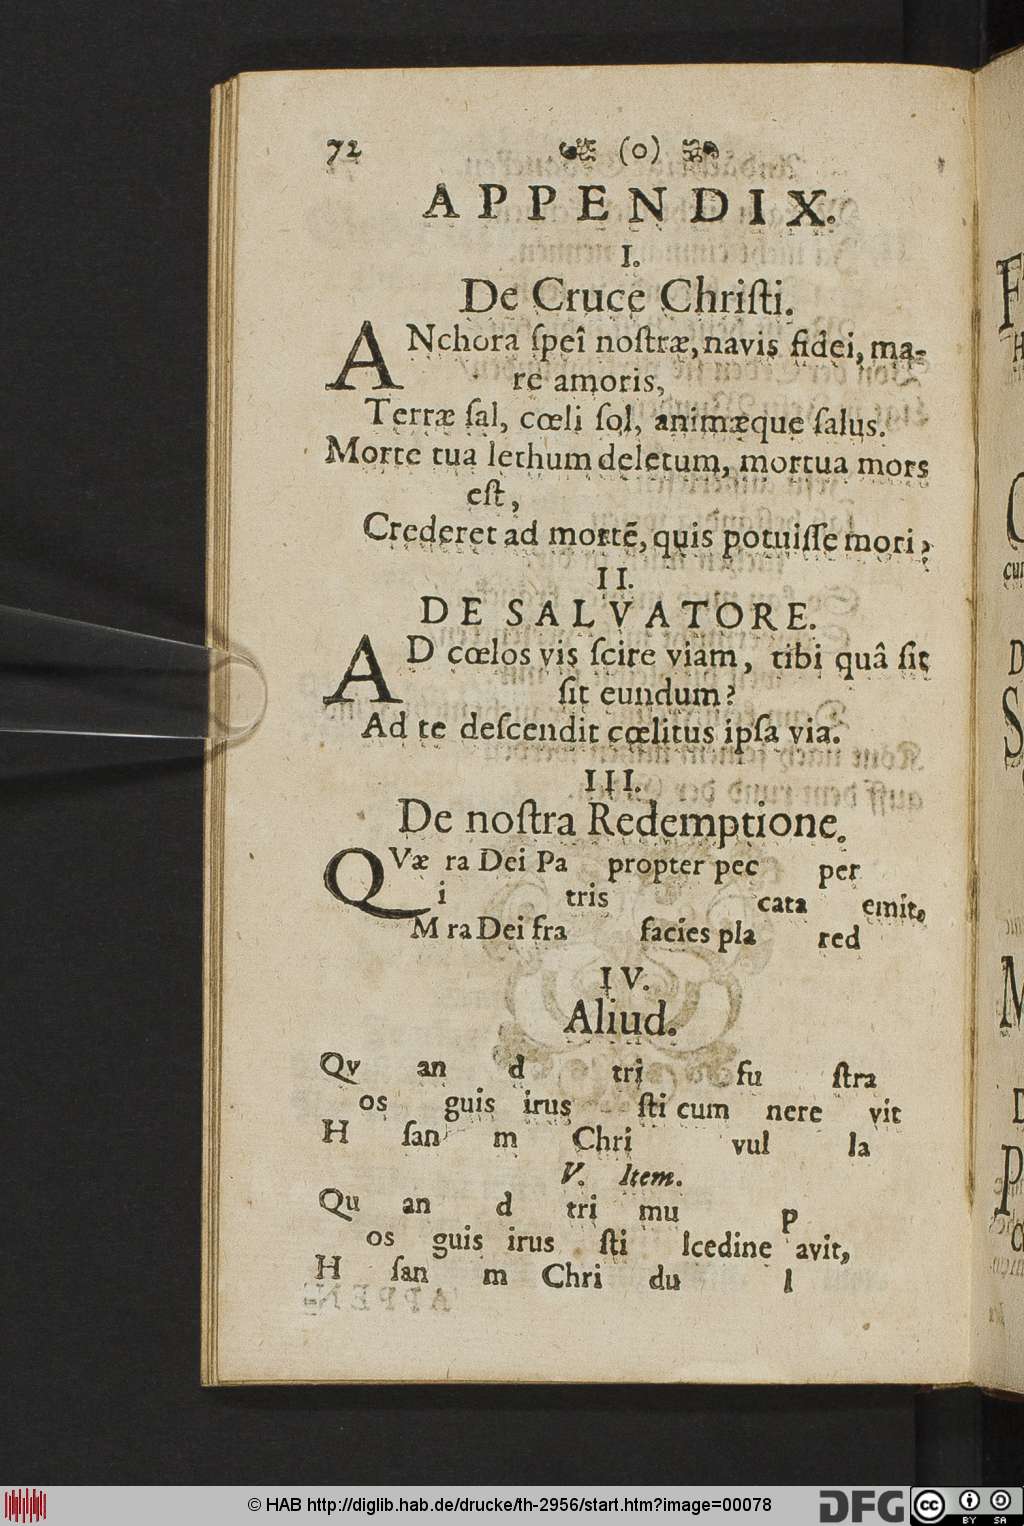 72 (o)
APPENDIX.
I.
De Cruce Chriſti.
ANchora ſpeî noſtræ, navis fidei, ma-
re amoris,
Terræ ſal, cœli ſol, animæque ſalus.
Morte tua lethum deletum, mortua mors
eſt,
Crederet ad mortẽ, quis potuiſſe mori?
II.
DE SALVATORE.
AD cœlos vis ſcire viam, tibi quâ ſit
ſit eundum?
Ad te deſcendit cœlitus ipſa via.
III.
De noſtra Redemptione.
QVæ ra Dei Pa propter pec per
i tris cata emit,
M ra Dei fra facies pla red
IV.
Aliud.
Qv an d tri fu ſtra
os guis irus ſti cum nere vit
H ſan m Chri vul la
V. Item.
Qu an d tri mu p
os guis irus ſti lcedine avit,
H ſan m Chri du l
© HAB http://diglib.hab.de/drucke/th-2956/start.htm?image=00078
DFG
cc BY SA